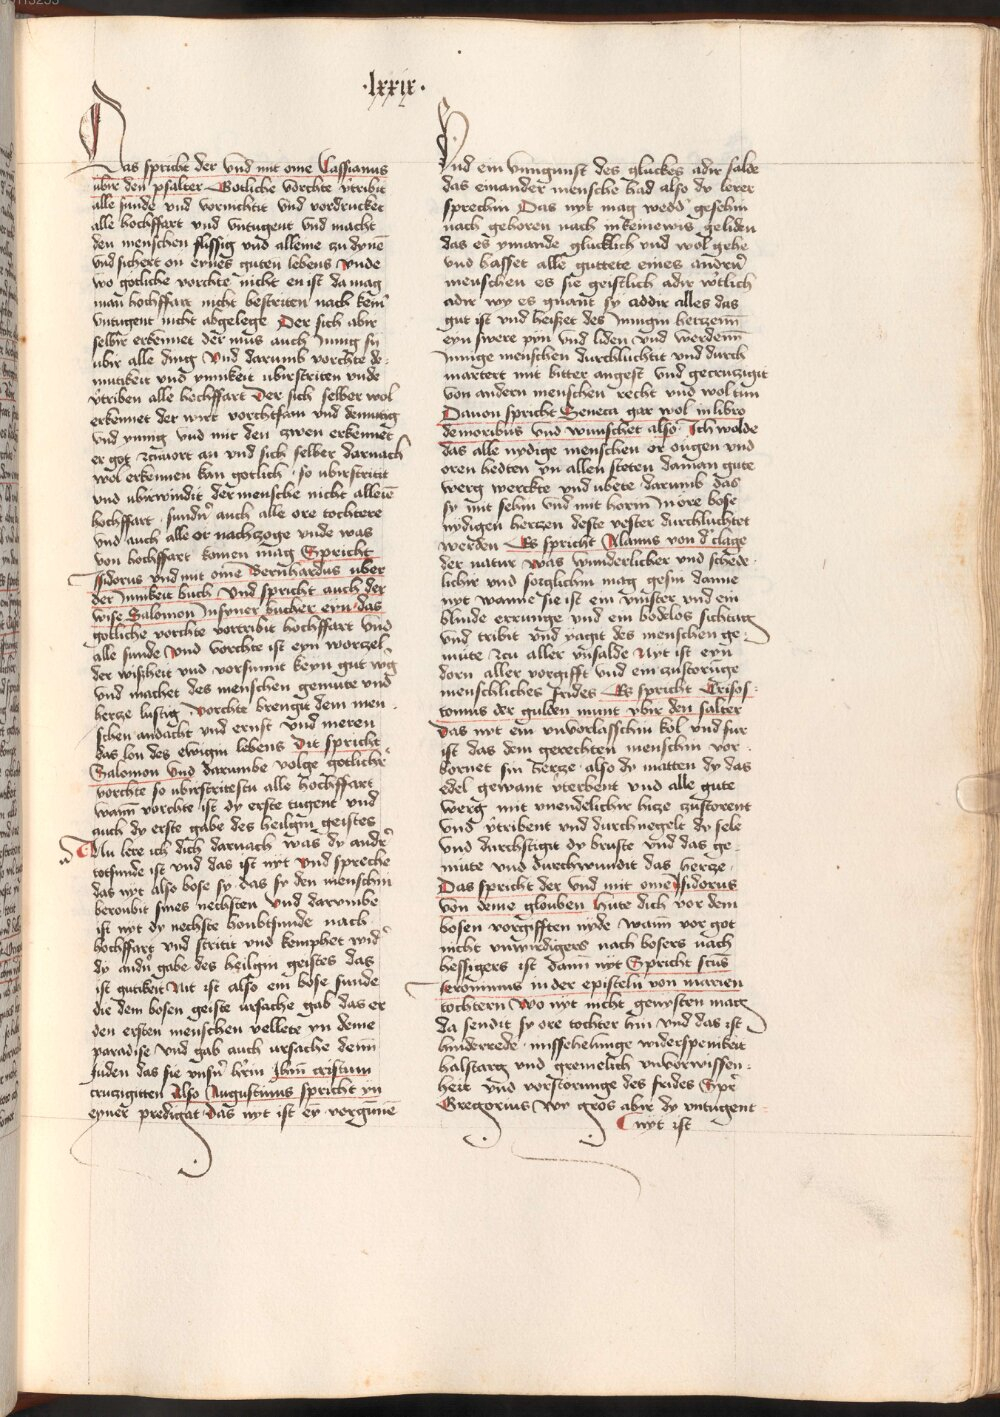 ·lxxix·
Das spricht der und mit ome Cassianus
ubir den psalter Gotliche vorchte v̓tribit
alle sunde vnd vornichtit vnd vordrucket
alle hochffart vnd vntugent vnd macht
den menschen flissig vnd alleine zu dyne͞
vnd sichert on eynes guten lebens Vnde
wo gotliche vorchte nicht en ist da mag
man hochffart nicht bestriten nach kein̓
vntugent nicht abgelege Der sich abir
selbir erkennet der mus auch Innig sin
ubir alle ding Vnd darumb vorchte de-
mutikeit vnd ynnikeit ubirstriten vnde
v̓triben alle hochffart Der sich selber wol
erkennet der wirt vorchtsam vnd demutig
vnd ynnig vnd mit den zwen erkennet
er got zcuuort an vnd sich selber darnach
wol erkennen kan gotlich · so ubirstritit
vnd ubirwindit der mensche nicht alleine
hochffart · sundn̓ auch alle ore tochtere
vnd auch alle or nachzoge vnde was
von hochffart komen mag Spricht
Isidorus vnd mit ome Bernhardus uber
der Innikeit buch Vnd spricht auch der
wise Salomon In syner bucher eyn das
gotliche vorchte vortribit hochffart vnd
alle sunde Vnd vorchte ist eyn worzel
der wißheit vnd vorsumit keyn gut wg̓
vnd machet des menschen gemute vnd
hercze lustig Vorchte brengit dem men-
schen andacht vnd ernst vnd meren
das lon des ewigin lebens Dit spricht
Salomon Vnd darumbe volge gotlichir
vorchte so ubirstritestu alle hochffart
wann vorchte ist dy erste tugent vnd
auch dy erste gabe des heiligin geistes
Nu lere ich dich darnach was dy andr̓
totsunde ist vnd das ist nyt Vnd spreche
das nyt also bose sy das sy den menschin
beroubit sines nechsten Vnd darumbe
ist nyt dy nechste houbtsunde nach
hochffart vnd stritit vnd kemphet wid̓
dy andn̓ gabe des heilgin geistes das
ist gutikeit Nit ist also ein bose sunde
die dem bosen geiste ursache gab das er
den ersten menschen vellete yn deme
paradise Vnd gab auch ursache denn
Juden das sie vnsn̓ hr̓in Ihm cristum
cruzigitten Also Augustinus spricht yn
eyner predigat das nyt ist ey vorgunne
Vnd ein vnngunst des gluckes adir salde
das einander mensche had also dy lerer
sprechin Das nyt mag wedd̓ gesehin
nach gehoren nach in keinewis geliden
das es ymande glucklich vnd wol gehe
vnd hasset alle guttete eines andern̓
menschen es sie geistlich adir w̓tlich
adir wy es gnant sy addir alles das
gut ist vnd heißet des Innigin herzenn
eyn swere pyn vnd liden vnd werdenn
Innige menschen durchluchtit vnd durch
martert mit bitter angest vnd gecruzigit
von andern menschen recht vnd wol tun
Dauon spricht Seneca gar wol in libro
demoribus vnd wunschet also Ich wolde
das alle nydige menschen or ougen vnd
oren hedten yn allen steten daman gute
werg werckte vnd ubete darumb das
sy mit sehin vnd mit horn In ore bose
nydigen herczen deste vester durchluchtet
werden Es spricht Alanus von d̓ clage
der natur Was wunderlicher vnd schede-
lichir vnd sorglichin mag gesin danne
nyt wanne sie ist ein vinster vnd ein
blinde errunge vnd ein bodelos suchtag
vnd tribit vnd yagit des menschen ge-
mute zcu aller vnsalde Nyt ist eyn
dorn aller vorgifft vnd ein zustorunge
menschliches frides Es spricht Crisos-
tomus der gulden munt ubir den salter
Das nyt ein vnvorlasschin kol vnd fur
ist das dem gerechten menschin vor-
bornet sin hercze also dy matten dy das
edel gewant v̓terbent vnd alle gute
werg mit vnendelichir hicze zustorent
vnd v̓tribent vnd durchnegelt dy sele
vnd durchstigit dy bruste vnd das ge-
mute vnd durchwundit das hercze ·
Das spricht der vnd mit ome Isidorus
von deme glouben hute dich vor dem
bosen vorgifften nyde wann vor got
nicht vnwirdigers nach bosers nach
hessigers ist dann nyt Spricht sctus̄
Jeronimus in der episteln von marien
tochtern Wo nyt nicht gewysten mag
da sendit sy ore tochter hin vnd das ist
hinderrede · missehelunge widerspenikeit
halstarg vnd gremelich vnvorwissen-
heit vnd vorstorunge des frides Spr̓
Gregorius Wy gros abir dy vntugent
nyt ist